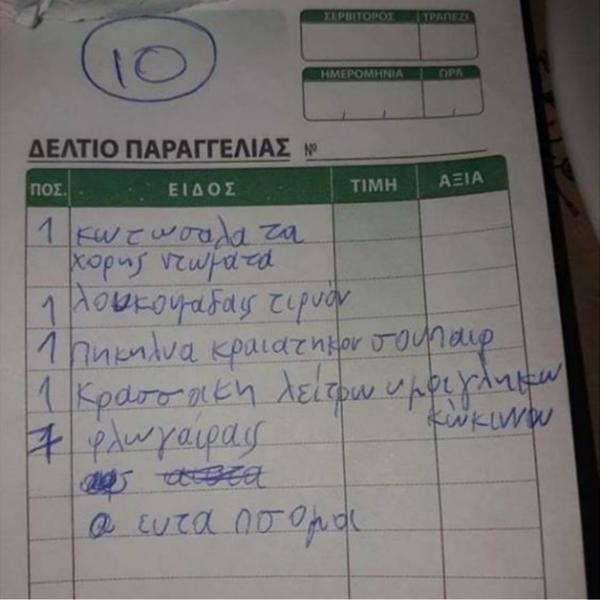 10
ΣΕΡΒΙΤΟΡΟΣ ΤΡΑΠΕΖΙ
ΗΜΕΡΟΜΗΝΙΑ ΩΡΑ
ΔΕΛΤΙΟ ΠΑΡΑΓΓΕΛΙΑΣ Νº
ΠΟΣ. ΕΙΔΟΣ ΤΙΜΗ ΑΞΙΑ
1 κωτωσαλατα
χορης ντωματα
1 λουκουμαδαις τιρυόν
1 πηκηλυα κραιατηκον σουπαιρ
1 κρασσακη λείτρων ημηγληκων
κώκινου
7 φλωγαίραις
α ευτα ποσομαι